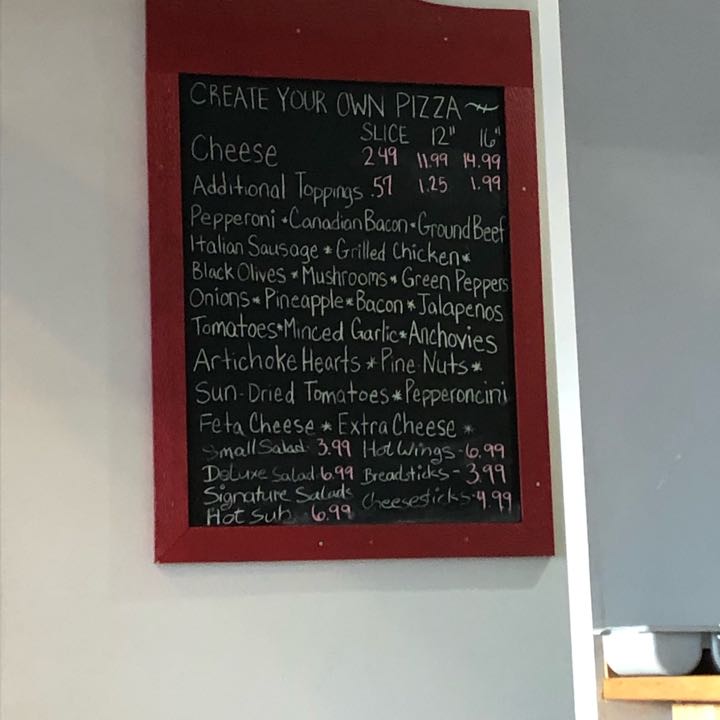 CREATE YOUR OWN PIZZA
SLICE 12" 16"
Cheese 2.49 11.99 14.99
Additional Toppings .57 1.25 1.99
Pepperoni * Canadian Bacon * Ground Beef
Italian Sausage * Grilled Chicken *
Black Olives * Mushrooms * Green Peppers
Onions * Pineapple * Bacon * Jalapenos
Tomatoes * Minced Garlic * Anchovies
Artichoke Hearts * Pine Nuts *
Sun-Dried Tomatoes * Pepperoncini
Feta Cheese * Extra Cheese *
Small Salad 3.99 Hot Wings - 6.99
Deluxe Salad 6.99 Breadsticks - 3.99
Signature Salads Cheesesticks - 4.99
Hot Sub 6.99